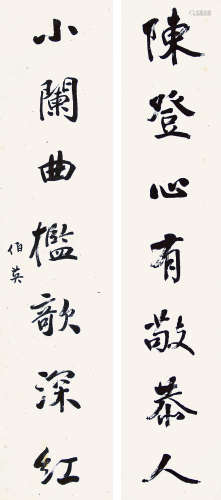 陳登心有敬恭人
小闌曲檻歌深紅
伯英